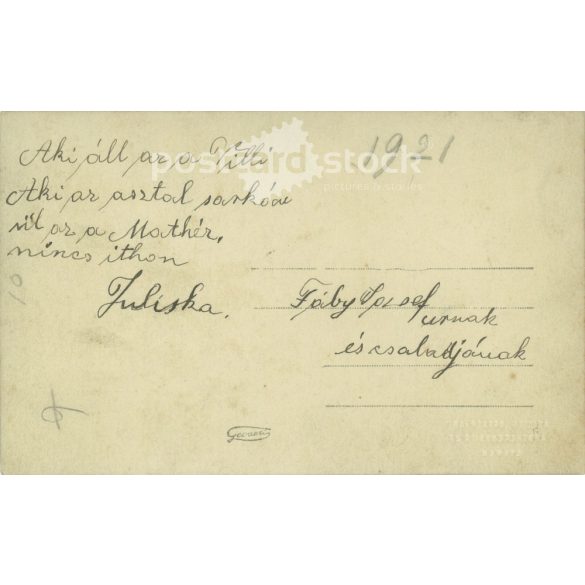 Aki áll az a Villi
Aki az asztal sarkóu
ül az a Mathér,
nincs ithon
Juliska.
1921
Fáby Jósef
urnak
és családjának
Gevaert
postcard stock
pictures & stories